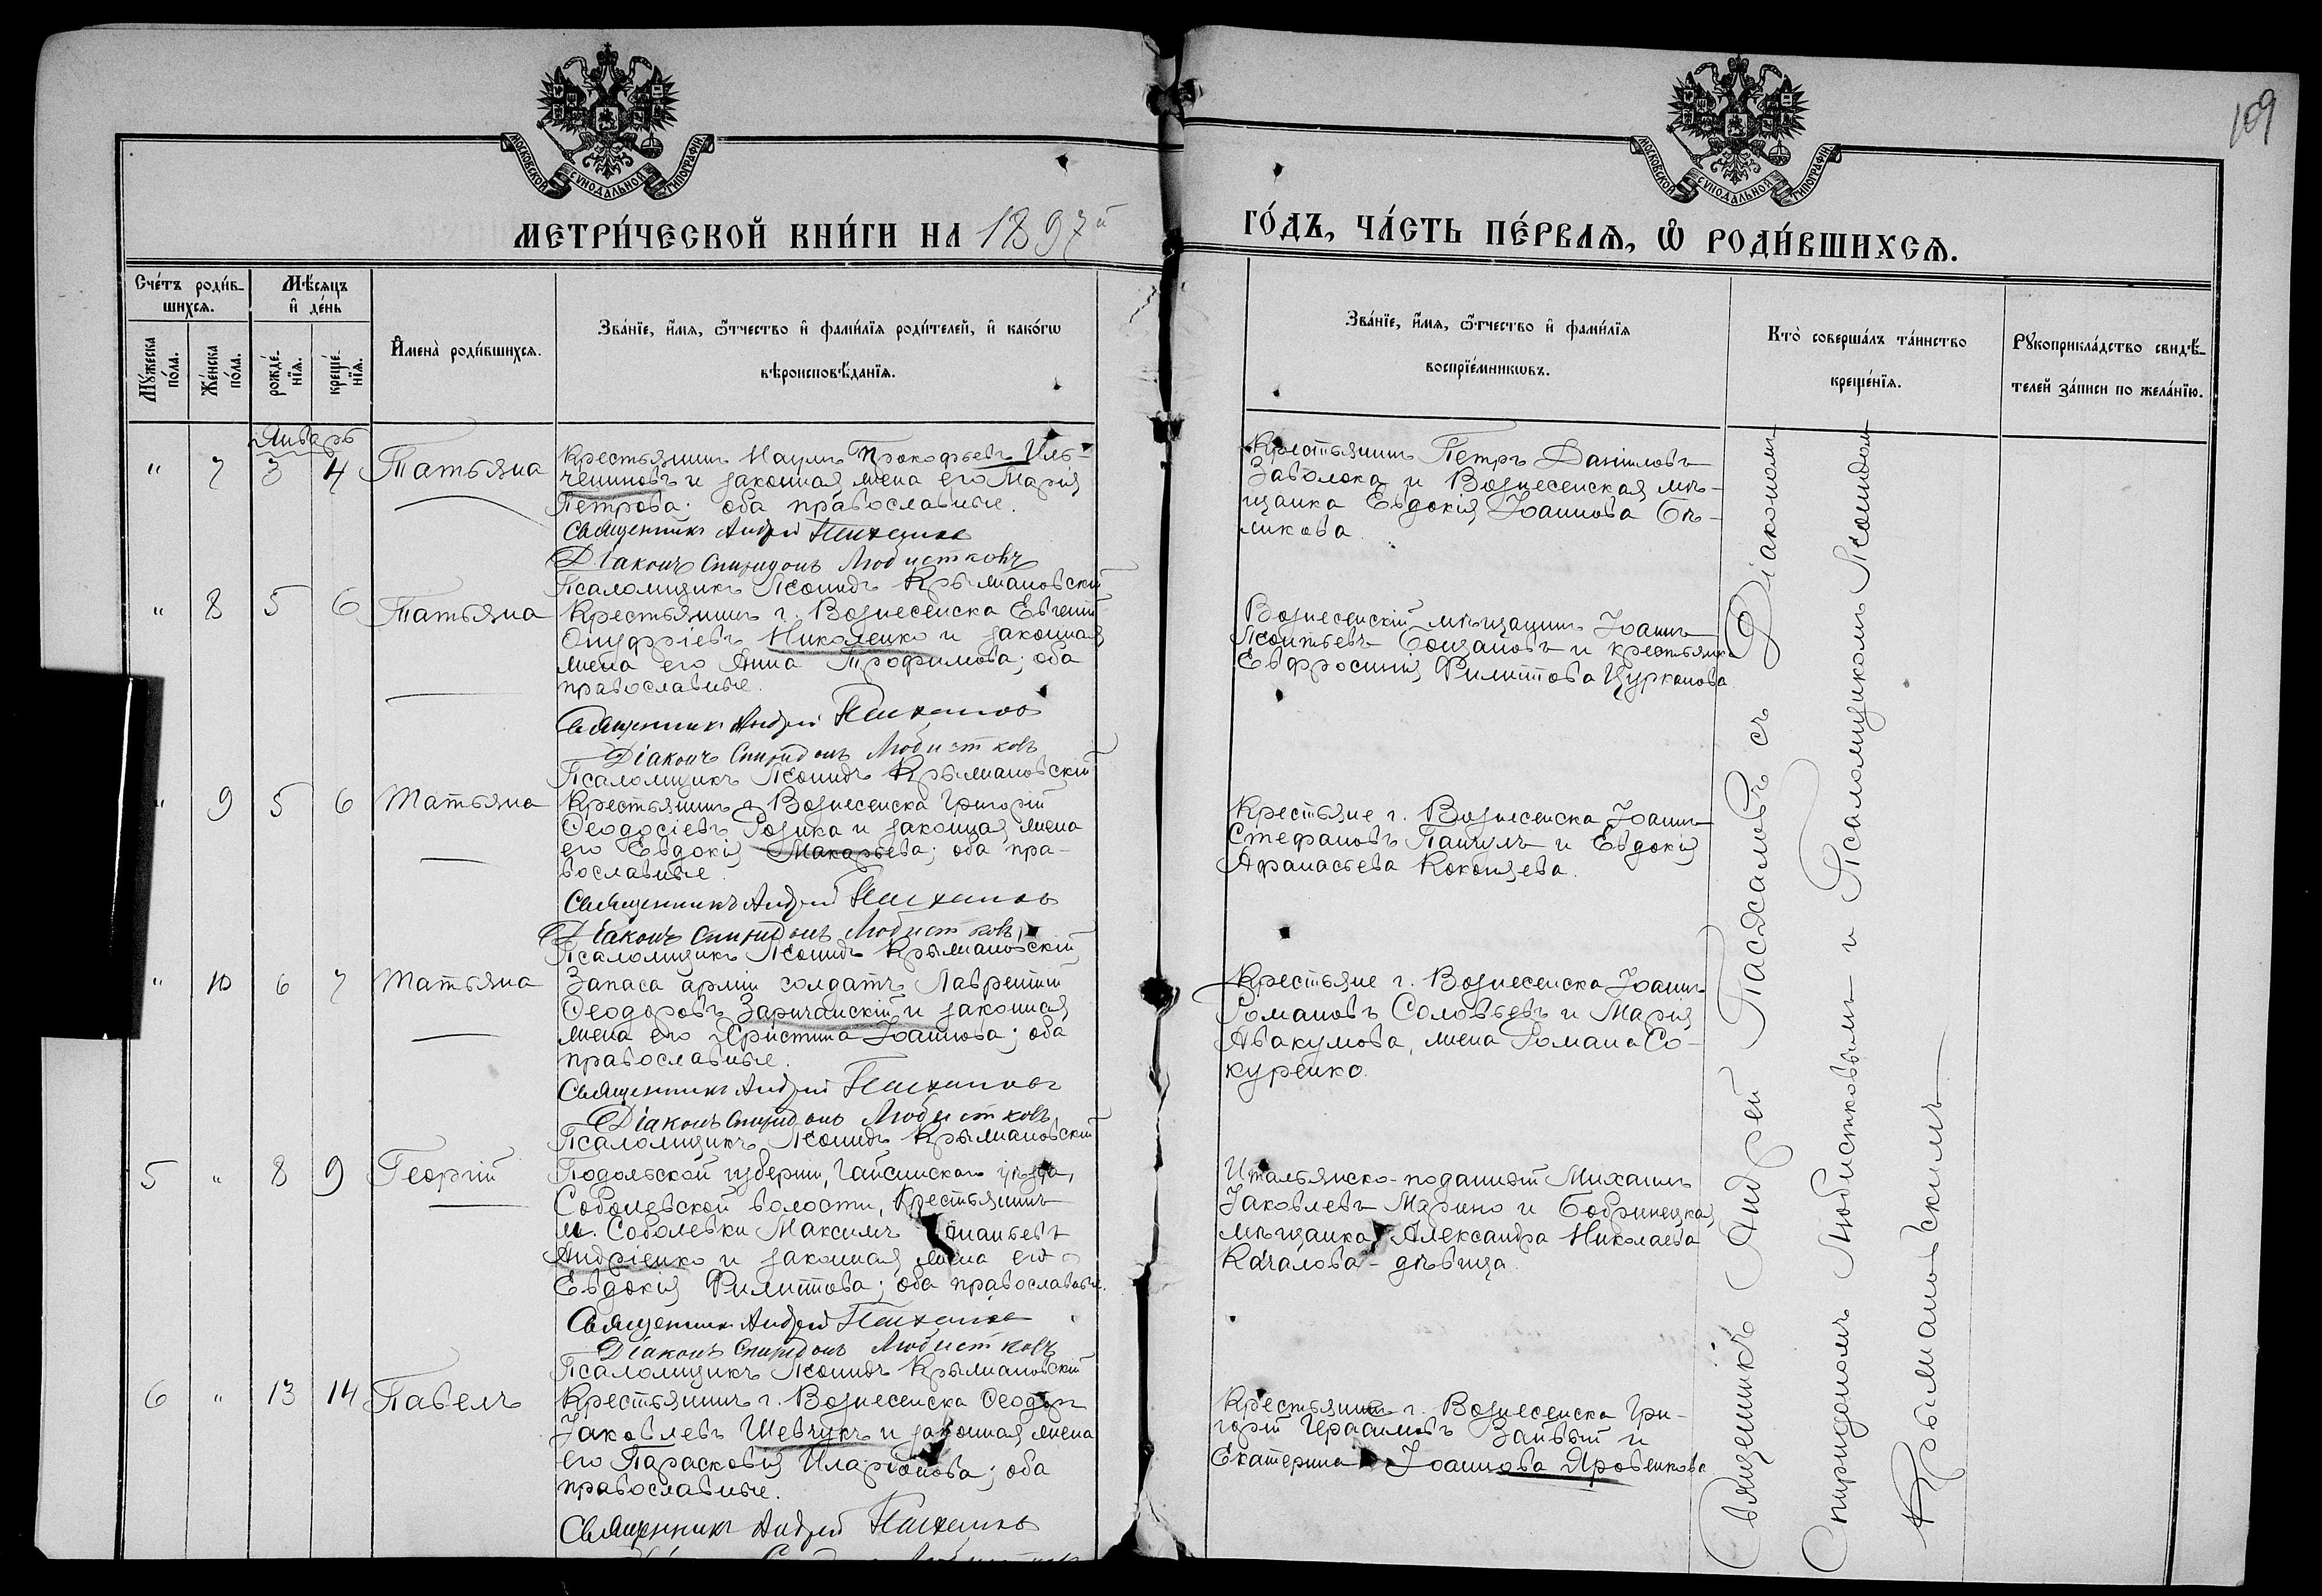 109
МОСКОВСКОЙ СѴНОДАЛЬНОЙ ТИПОГРАФІИ.
МОСКОВСКОЙ СѴНОДАЛЬНОЙ ТИПОГРАФІИ.
МЕТРИ́ЧЕСКОЙ КНИ́ГИ НА 1897й
ГО́ДЪ, ЧА́СТЬ ПЕ́РВАѦ, Ѡ҆ РОДИ́ВШИХСѦ.
Сче́тъ роди́в-
шихсѧ.
Мѣ́сѧцъ
и҆ де́нь
Мꙋ́жеска
по́ла.
Же́нска
по́ла.
рожде́-
нїѧ.
креще́-
нїѧ.
И҆мена̀ роди́вшихсѧ.
Зва́нїе, и҆́мѧ, ѻ҆́тчество и҆ фами́лїѧ роди́телей, и҆ како́гѡ
вѣроисповѣ́данїѧ.
Зва́нїе, и҆́мѧ, ѻ҆́тчество и҆ фами́лїѧ
воспрїе́мникѡвъ.
Кто̀ соверша́лъ та́инство
креще́нїѧ.
Рꙋкоприкла́дство свидѣ́-
телей за́писи по жела́нїю.
Январь
" 7 3 4 Татьяна
Крестьянинъ Наумъ Прокофьевъ Иль-
ченновъ и законная жена его Марія
Петрова; оба православные.
Священникъ Андрей
Діаконъ Спиридонъ Любистковъ
Псаломщикъ Леонидъ Крыжановскій
Крестьянинъ Петръ Даніиловъ
Заволока и Вознесенская мѣ-
щанка Евдокія Іоаннова Бѣ-
ликова.
" 8 5 6 Татьяна
Крестьянинъ г. Вознесенска Евгеній
Онуфріевъ Николенко и законная
жена его Анна Трофимова; оба
православные.
Священникъ Андрей
Діаконъ Спиридонъ Любистковъ
Псаломщикъ Леонидъ Крыжановскій
Вознесенскій мѣщанинъ Іоаннъ
Леонтьевъ Бощановъ и крестьянка
Евфросинія Филиппова Цурканова
" 9 5 6 Татьяна
Крестьянинъ г. Вознесенска Григорій
Ѳеодосіевъ Розика и законная жена
его Евдокія Макарьева; оба пра-
вославные.
Священникъ Андрей
Діаконъ Спиридонъ Любистковъ
Псаломщикъ Леонидъ Крыжановскій
Крестьяне г. Вознесенска Іоаннъ
Стефановъ Панчулъ и Евдокія
Афанасьева
" 10 6 7 Татьяна
Запаса арміи солдатъ Лаврентій
Ѳеодоровъ Заричанскій и законная
жена его Христина Іоаннова; оба
православные.
Священникъ Андрей
Діаконъ Спиридонъ Любистковъ
Псаломщикъ Леонидъ Крыжановскій
Крестьяне г. Вознесенска Іоаннъ
Романовъ Соловьевъ и Марія
Авакумова, жена Романа Со-
куренко.
5 " 8 9 Георгій
Подольской губерніи, Гайсинскаго уѣзда,
Соболевской волости, Крестьянинъ
м. Соболевки Максимъ
Андріенко и законная жена его
Евдокія Филиппова; оба православные.
Священникъ Андрей
Діаконъ Спиридонъ Любистковъ
Псаломщикъ Леонидъ Крыжановскій
Итальянско-подданный Михаилъ
Іаковлевъ Марино и Бобринецкая
мѣщанка Александра Николаева
Качалова - дѣвица.
6 " 13 14 Павелъ
Крестьянинъ г. Вознесенска Ѳеодоръ
Іаковлевъ Шевчукъ и законная жена
его Парасковія Иларіонова; оба
православные.
Священникъ Андрей
Крестьянинъ г. Вознесенска Гри-
горій Герасимовъ и
Екатерина Іоаннова Яровенкова
Священникъ Андрей съ Діакономъ
Спиридономъ Любистковымъ и Псаломщикомъ Леонидомъ
Крыжановскимъ